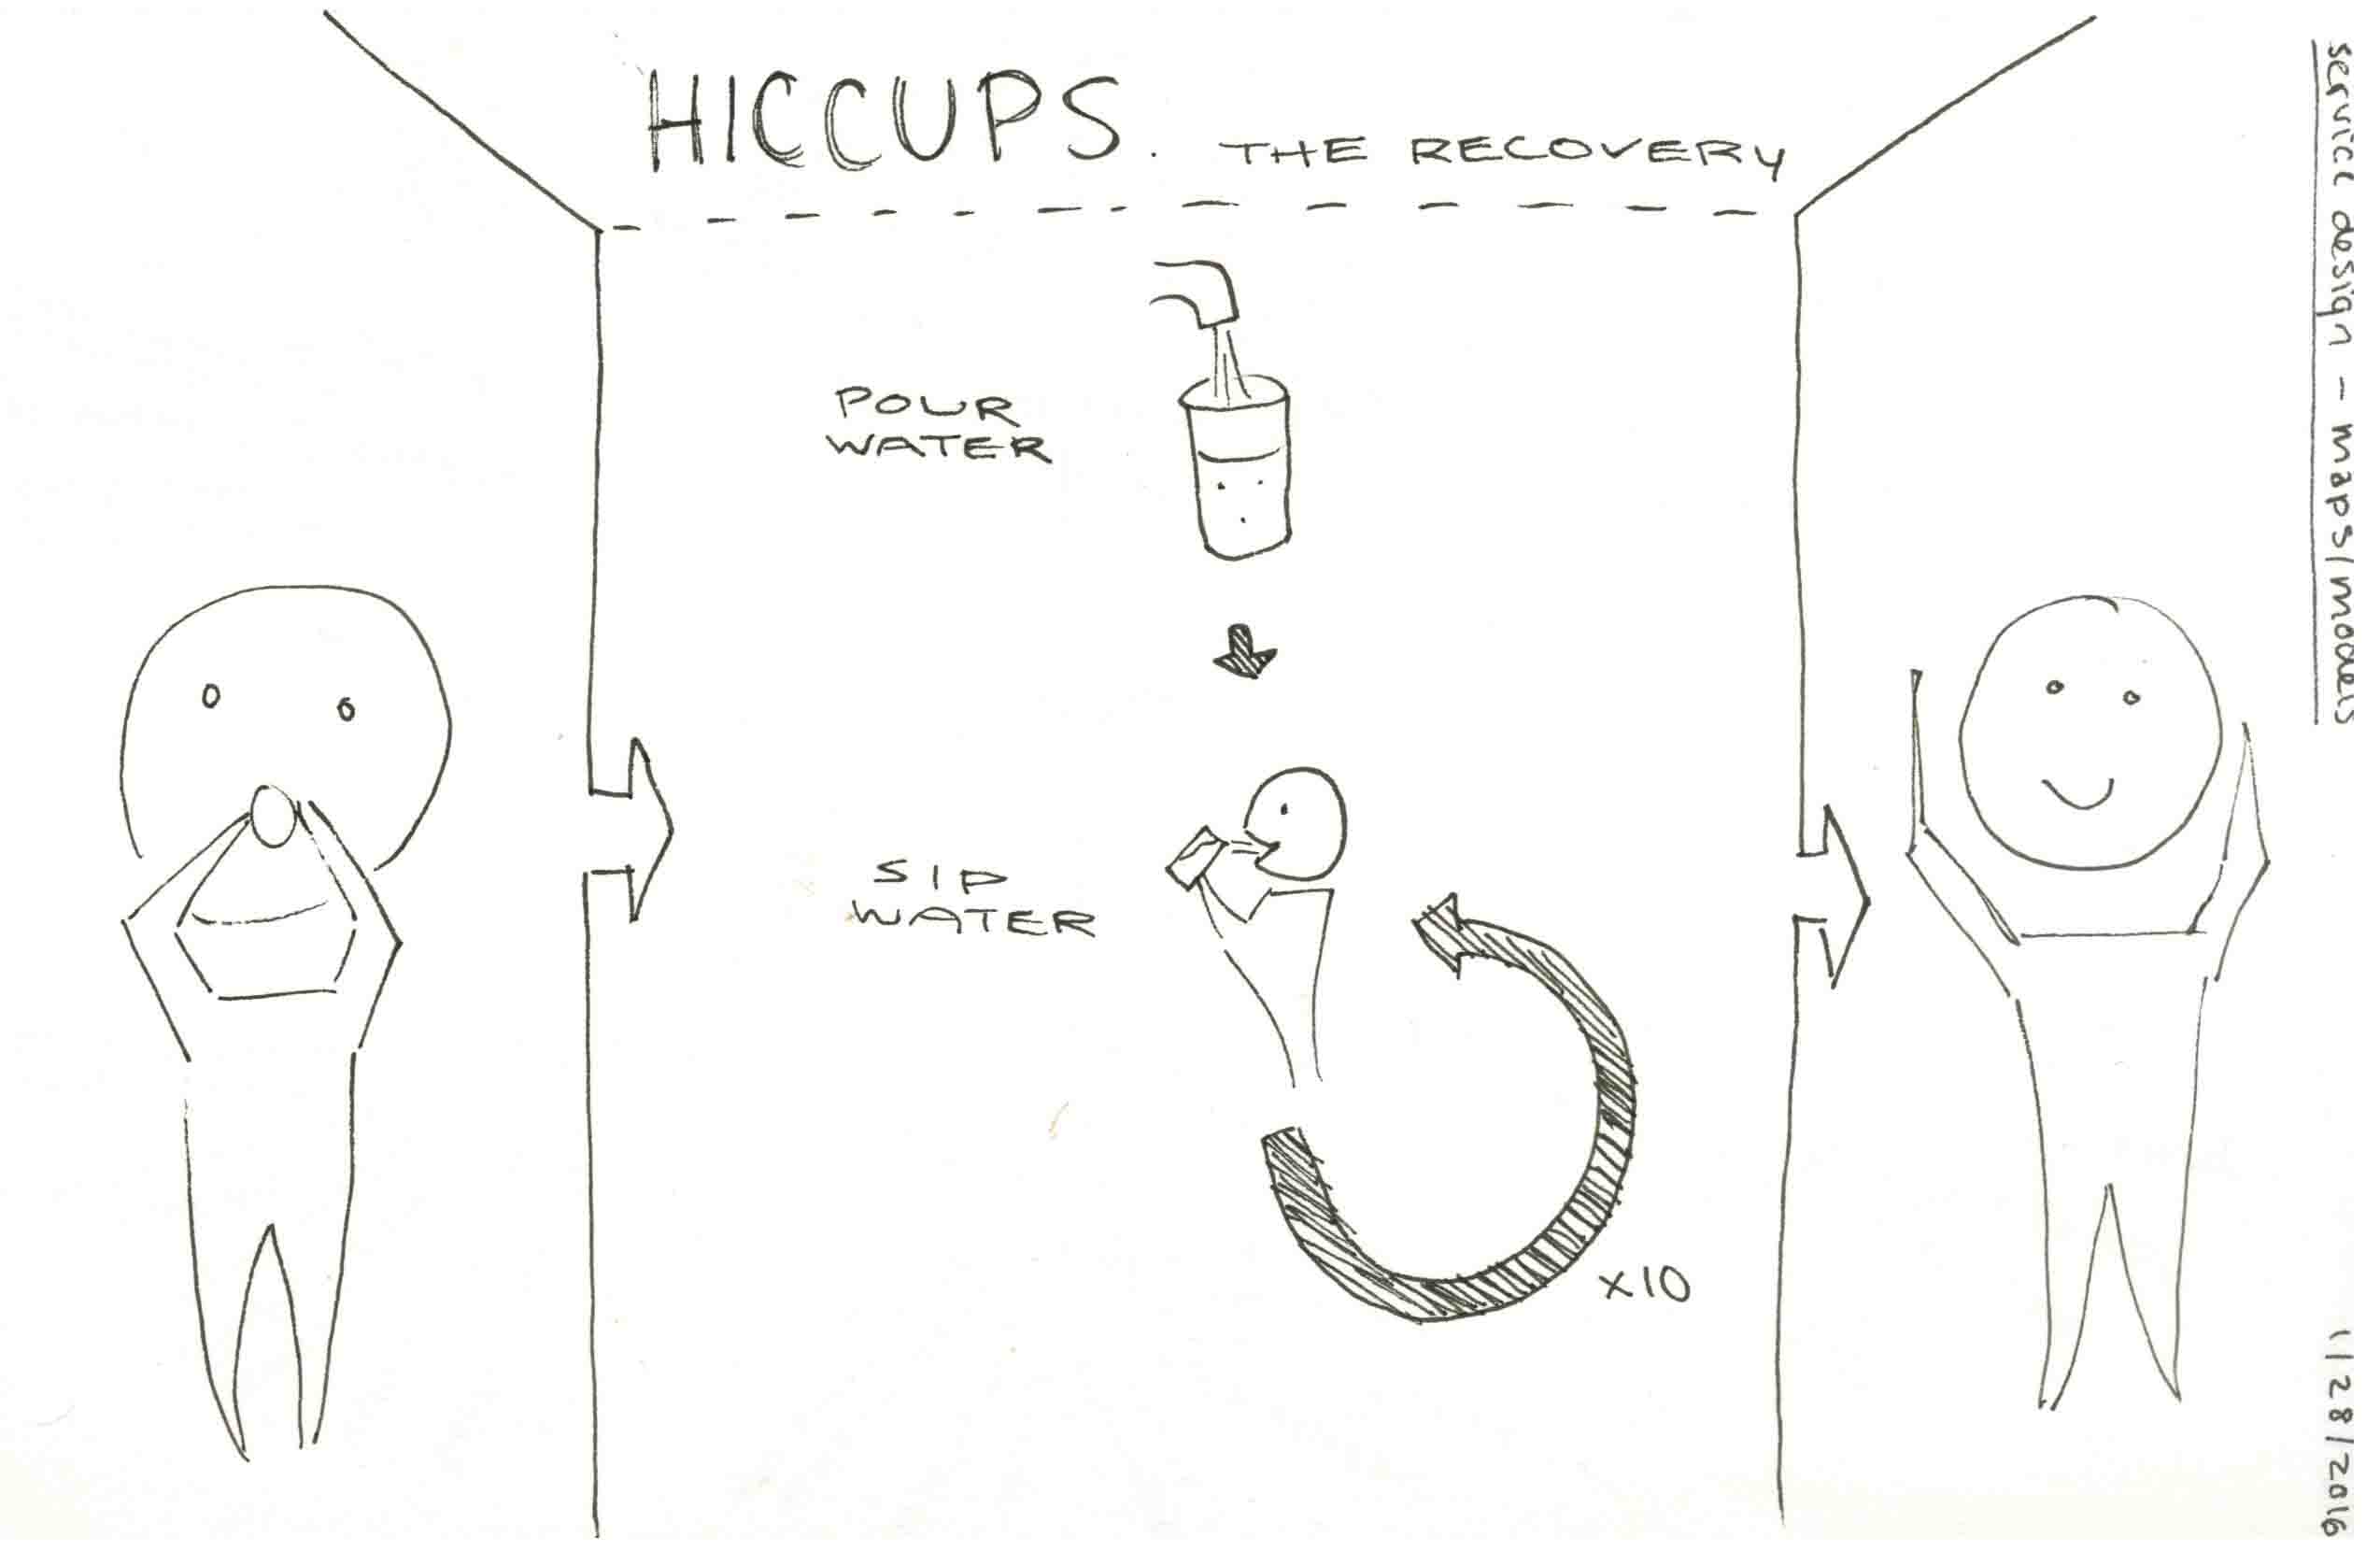 HICCUPS. THE RECOVERY
POUR
WATER
SIP
WATER
x10
service design - maps/models
11/28/2016